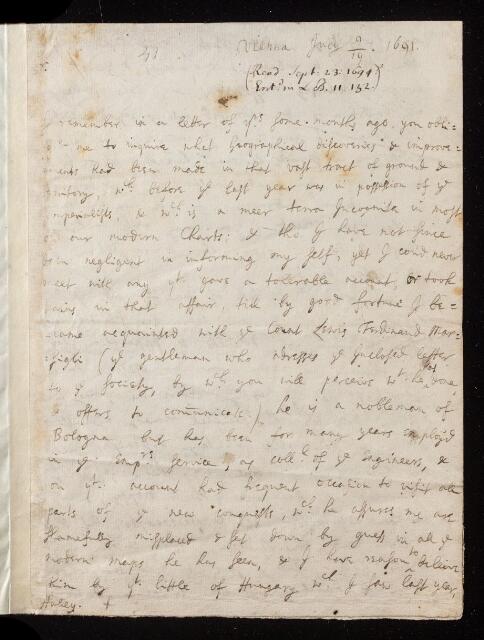 Vienna July 9/19. 1691.
(Read Sept. 23. 1691
Entd in L. B. 11. 152.)
I remember in a letter of yrs some months ago, you obli=
me to inquire what Geographical discoveries & improve=
ments had been made in that vast tract of ground &
territory, wch before ye last year was in possession of ye
Imperialists, & wch is a meer terra Incognita in most
of our modern Charts: & tho I have not since
been negligent in informing my self, yet I coud never
meet with any yt gave a tolerable account, or took
pains in that affair, till by good fortune I be=
came acquainted with ye Count Lewis Ferdinand Mar=
sigli (ye gentleman who adresses ye inclosed letter
to ye Society, by wch you will perceive wt he has done,
& offers to communicate) he is a nobleman of
Bologna but has been for many years employd
in ye Emprs service, as of ye Engineers, &
on yt account had frequent occasion to visit all
parts of ye new conquests, wch he assures me are
shamefully misplaced & set down by guess in all ye
modern maps he has seen, & I have reason to believe
him by yt little of Hungary wch I saw last year,